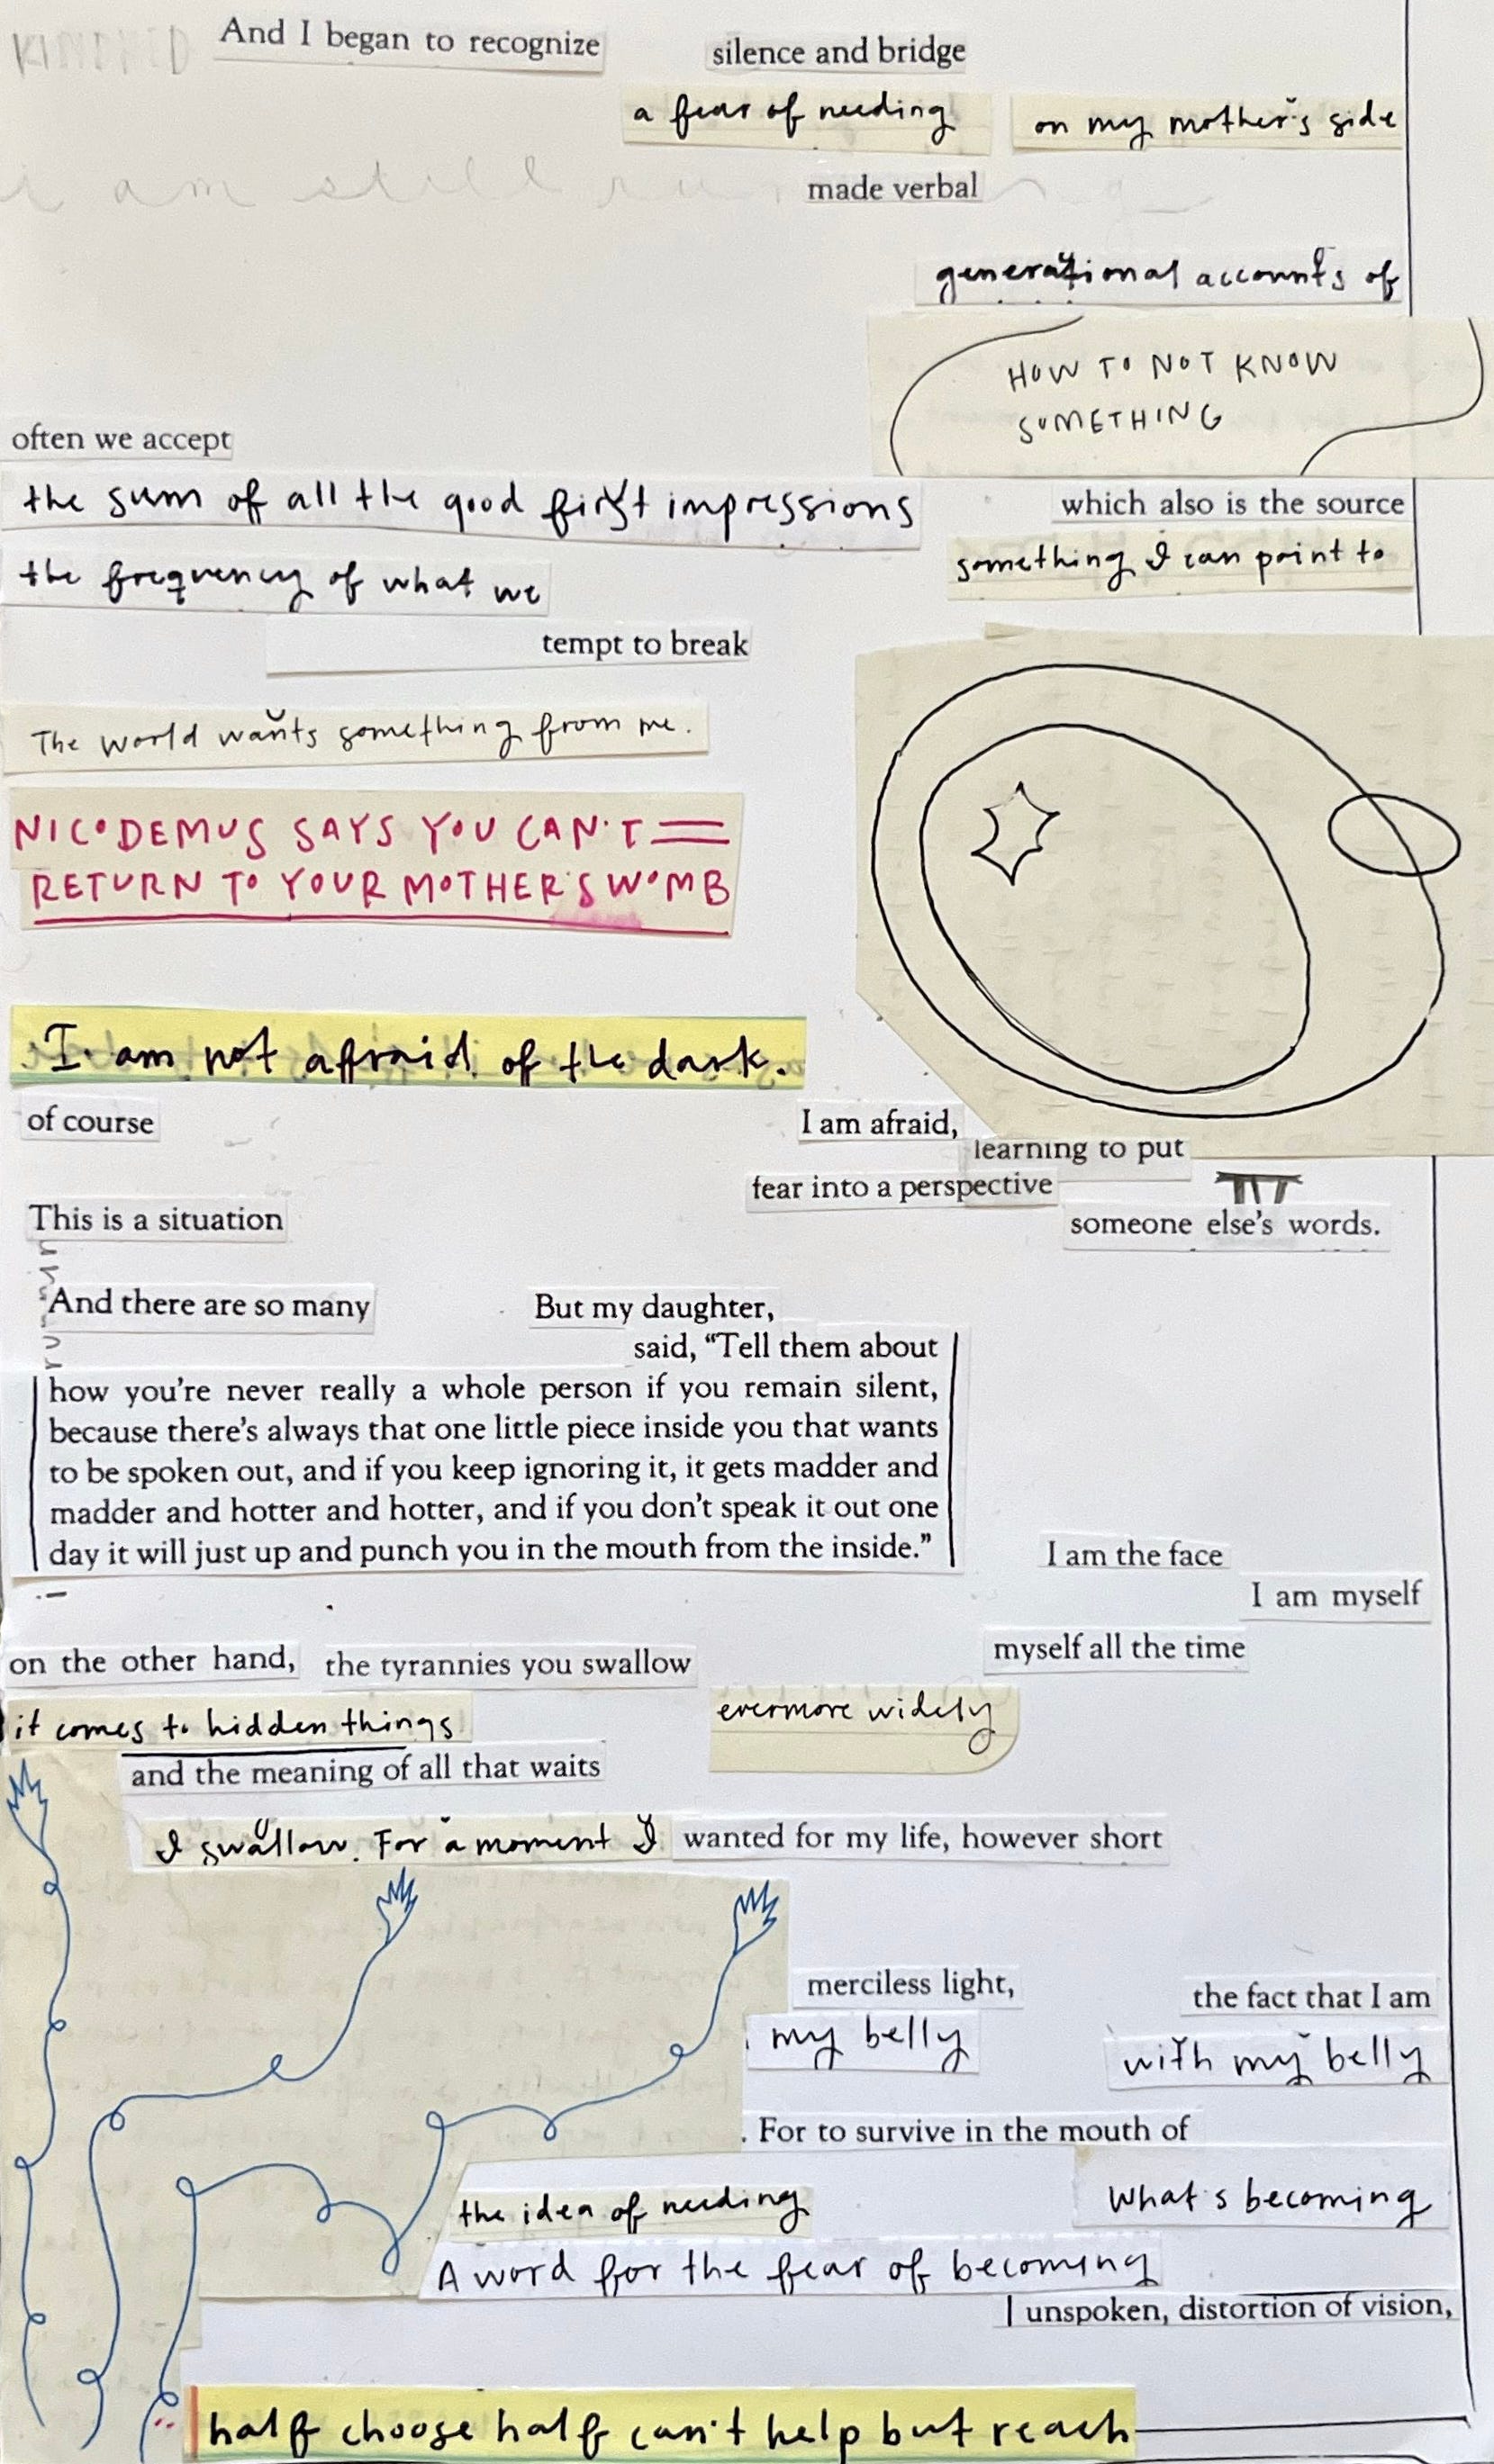 And I began to recognize
silence and bridge
a fear of needing
on my mother's side
i am still
made verbal
generational accounts of
HOW TO NOT KNOW
SOMETHING
often we accept
the sum of all the good first impressions
which also is the source
the frequency of what we
something I can point to
tempt to break
The world wants something from me.
NICODEMUS SAYS YOU CAN'T
RETURN TO YOUR MOTHER'S WOMB
I am not afraid of the dark.
of course
I am afraid,
learning to put
fear into a perspective
someone else's words.
This is a situation
And there are so many
But my daughter,
said, “Tell them about
how you're never really a whole person if you remain silent,
because there's always that one little piece inside you that wants
to be spoken out, and if you keep ignoring it, it gets madder and
madder and hotter and hotter, and if you don't speak it out one
day it will just up and punch you in the mouth from the inside.”
I am the face
I am myself
myself all the time
on the other hand,
the tyrannies you swallow
it comes to hidden things
evermore widely
and the meaning of all that waits
I swallow. For a moment I
wanted for my life, however short
merciless light,
the fact that I am
my belly
with my belly
. For to survive in the mouth of
the idea of needing
What's becoming
A word for the fear of becoming
unspoken, distortion of vision,
half choose half can't help but reach